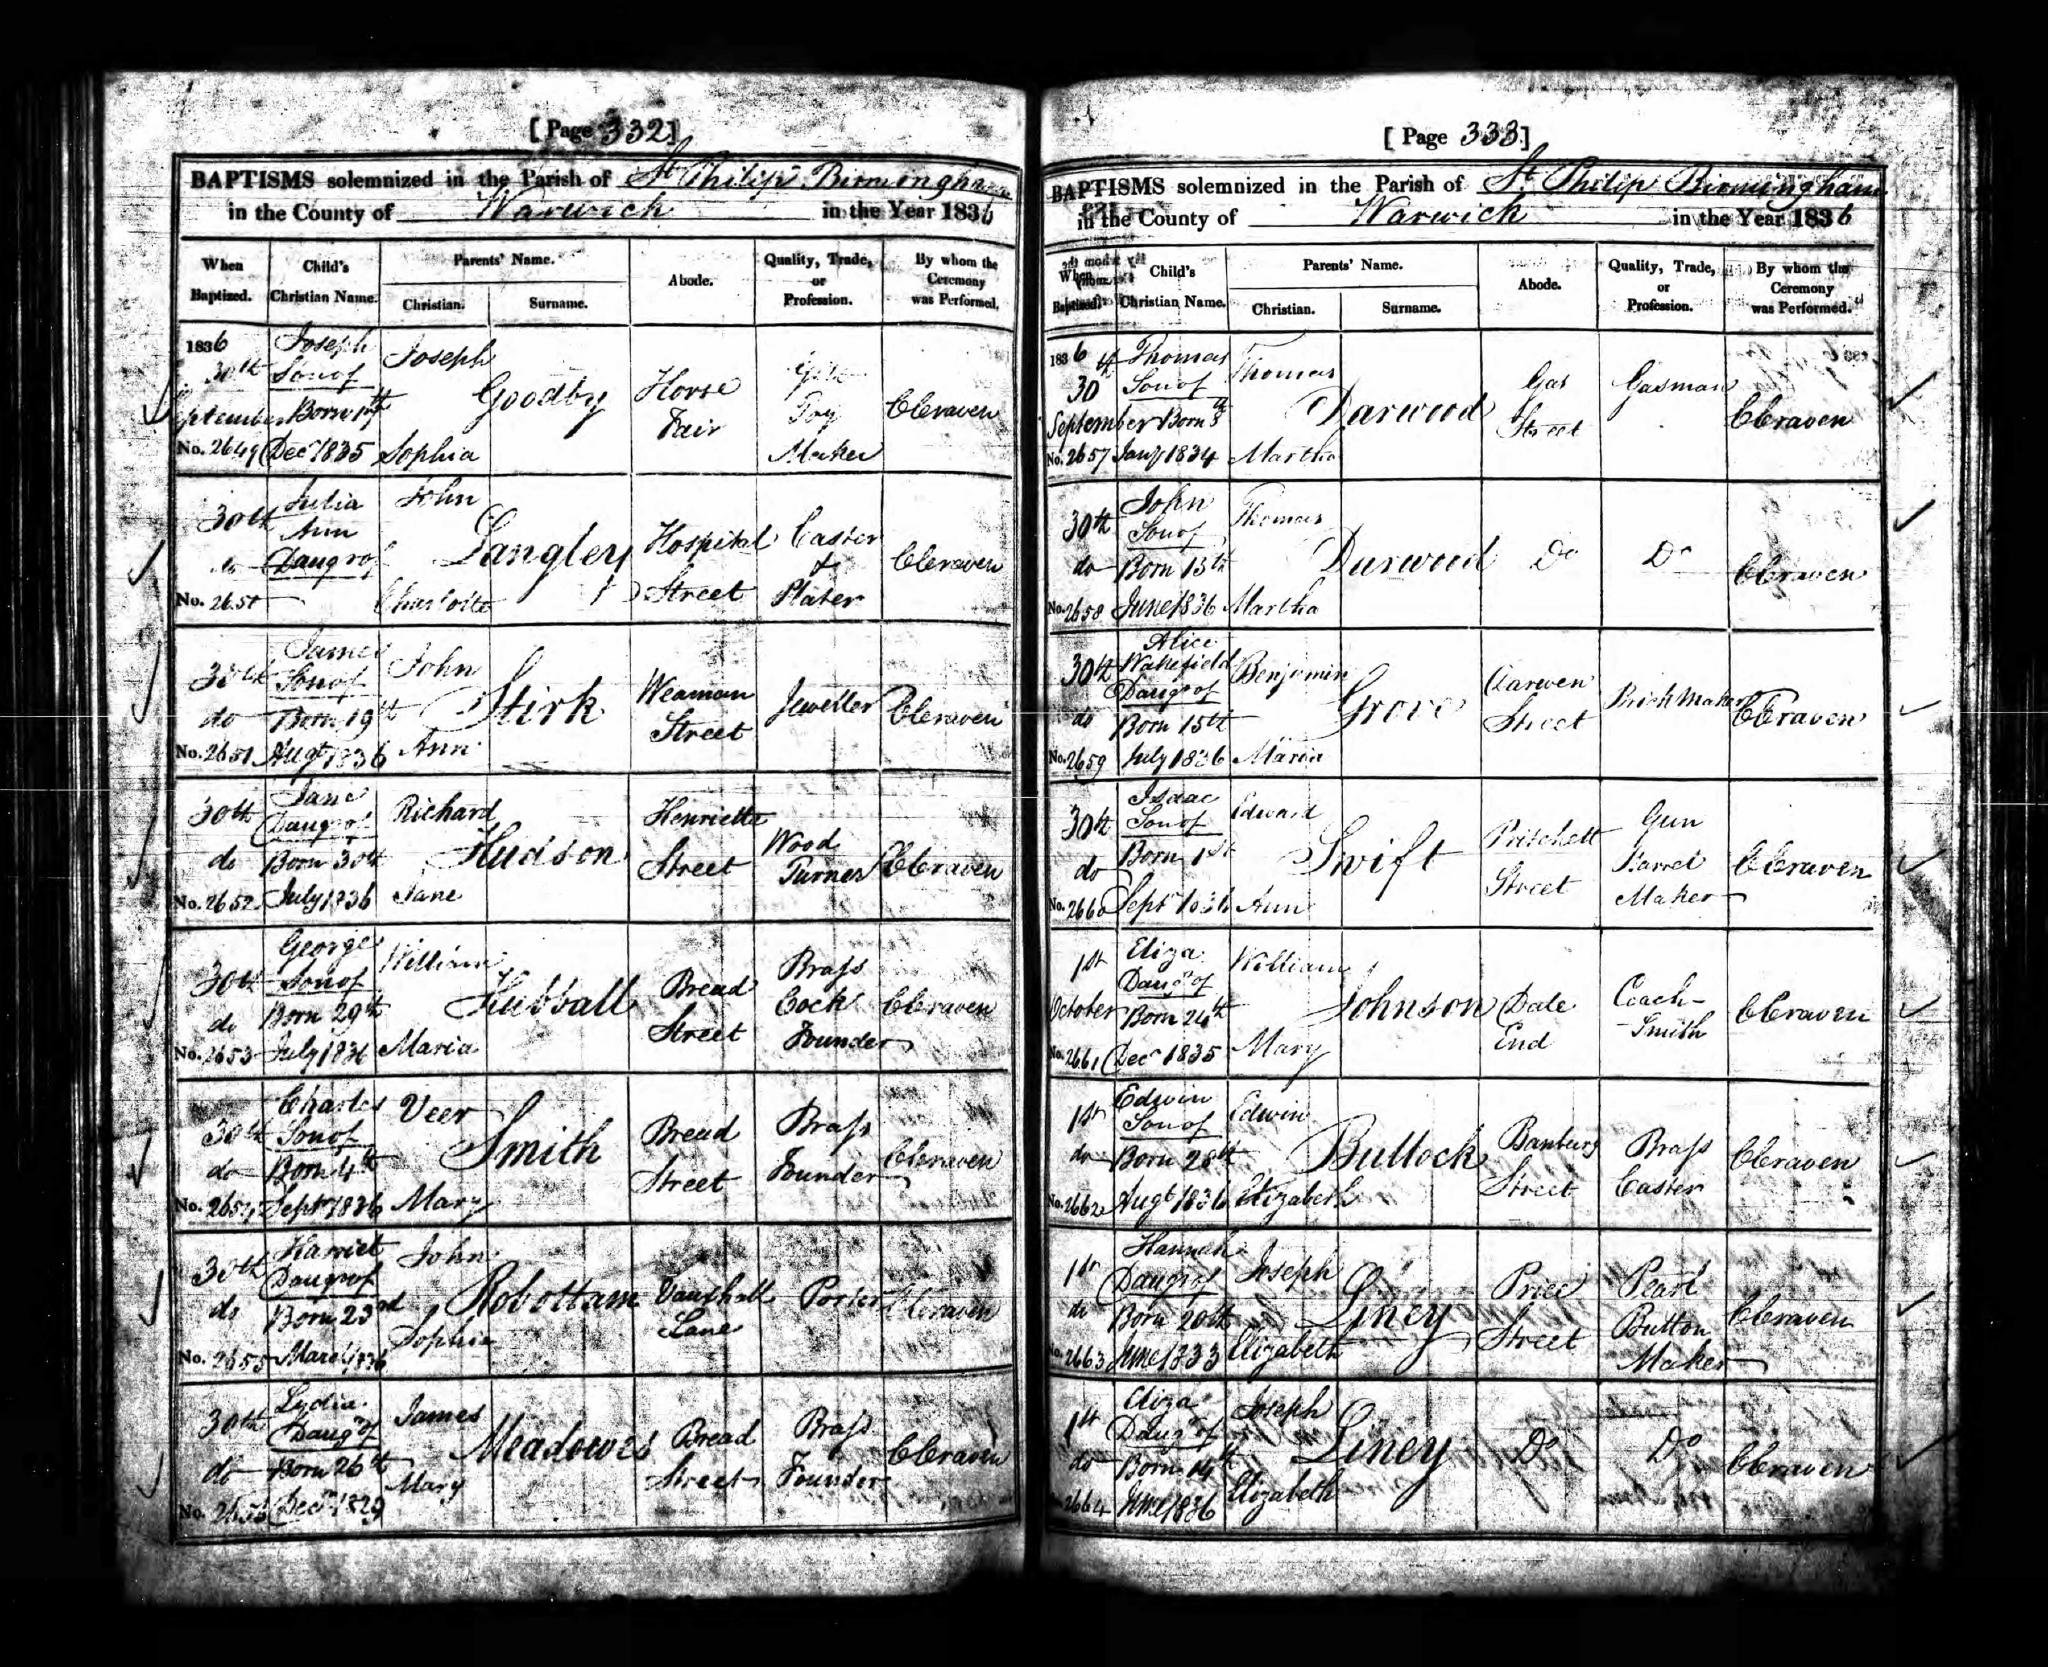 [ Page 332]
BAPTISMS solemnized in the Parish of St Philip Birmingham
in the County of Warwick in the Year 1836
When Baptized.
Child's Christian Name.
Parents' Name.
Christian.
Surname.
Abode.
Quality, Trade, or Profession.
By whom the Ceremony was Performed.
1836
30th
September
No. 2649
Joseph
Son of
Born
Decr 1835
Joseph
Sophia
Goodby
Horse
Fair
Toy
Maker
C Craven
30th
do
No. 2650
Julia
Ann
Daugr of
John
Charlotte
Langley
Hospital
Street
Caster
&
Plater
C Craven
30th
do
No. 2651
James
Son of
Born 19th
Augt 1836
John
Ann
Stirk
Weaman
Street
Jeweller
C Craven
30th
do
No. 2652
Jane
Daugr of
Born 30th
July 1836
Richard
Jane
Hudson
Henrietta
Street
Wood
Turner
C Craven
30th
do
No. 2653
George
Son of
Born 29th
July 1836
William
Maria
Hubball
Bread
Street
Brass
Cock
Founder
C Craven
30th
do
No. 2654
Charles
Son of
Born 4th
Septr 1836
Veer
Mary
Smith
Bread
Street
Brass
Founder
C Craven
30th
do
No. 2655
Harriet
Daugr of
Born 23rd
March 1836
John
Sophia
Robottam
Vauxhall
Lane
Porter
C Craven
30th
do
No. 2656
Lydia
Daugr of
Born 26th
Decr 1829
James
Mary
Meadows
Bread
Street
Brass
Founder
C Craven
[ Page 333]
BAPTISMS solemnized in the Parish of St Philip Birmingham
in the County of Warwick in the Year 1836
When Baptized.
Child's Christian Name.
Parents' Name.
Christian.
Surname.
Abode.
Quality, Trade, or Profession.
By whom the Ceremony was Performed.
1836
30th
September
No. 2657
Thomas
Son of
Born
Jany 1834
Thomas
Martha
Darwood
Gas
Street
Gasman
C Craven
30th
do
No. 2658
John
Son of
Born 13th
June 1836
Thomas
Martha
Durwood
Do
Do
C Craven
30th
do
No. 2659
Alice
Wakefield
Daugr of
Born 15th
July 1836
Benjamin
Maria
Grove
Darwen
Street
Brick Maker
C Craven
30th
do
No. 2660
Isaac
Son of
Born 1st
Septr 1836
Edward
Ann
Swift
Pritchett
Street
Gun
Barrel
Maker
C Craven
1st
October
No. 2661
Eliza
Daugr of
Born 24th
Decr 1835
William
Mary
Johnson
Dale
End
Coach-
-Smith
C Craven
1st
do
No. 2662
Edwin
Son of
Born 28th
Augt 1836
Edwin
Elizabeth
Bullock
Banbury
Street
Brass
Caster
C Craven
1st
do
No. 2663
Hannah
Daugr of
Born 20th
June 1833
Joseph
Elizabeth
Liney
Price
Street
Pearl
Button
Maker
C Craven
1st
do
2664
Eliza
Daugr of
Born 14th
June 1836
Joseph
Elizabeth
Liney
Do
Do
C Craven